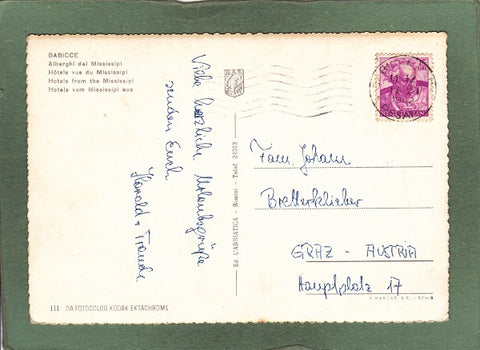 GABICCE
Alberghi dal Mississipi
Hôtels vue du Mississipi
Hotels from the Mississipi
Hotels vom Mississipi aus
Viele herzliche Urlaubsgrüße
senden Euch
Harald + Traude
Ed. L'ADRIATICA - Rimini - Telef. 24333
ITALIANE
Fam. Johann
Bretterklieber
GRAZ - AUSTRIA
Hauptplatz 17
111 DA FOTOCOLOR KODAK EKTACHROME